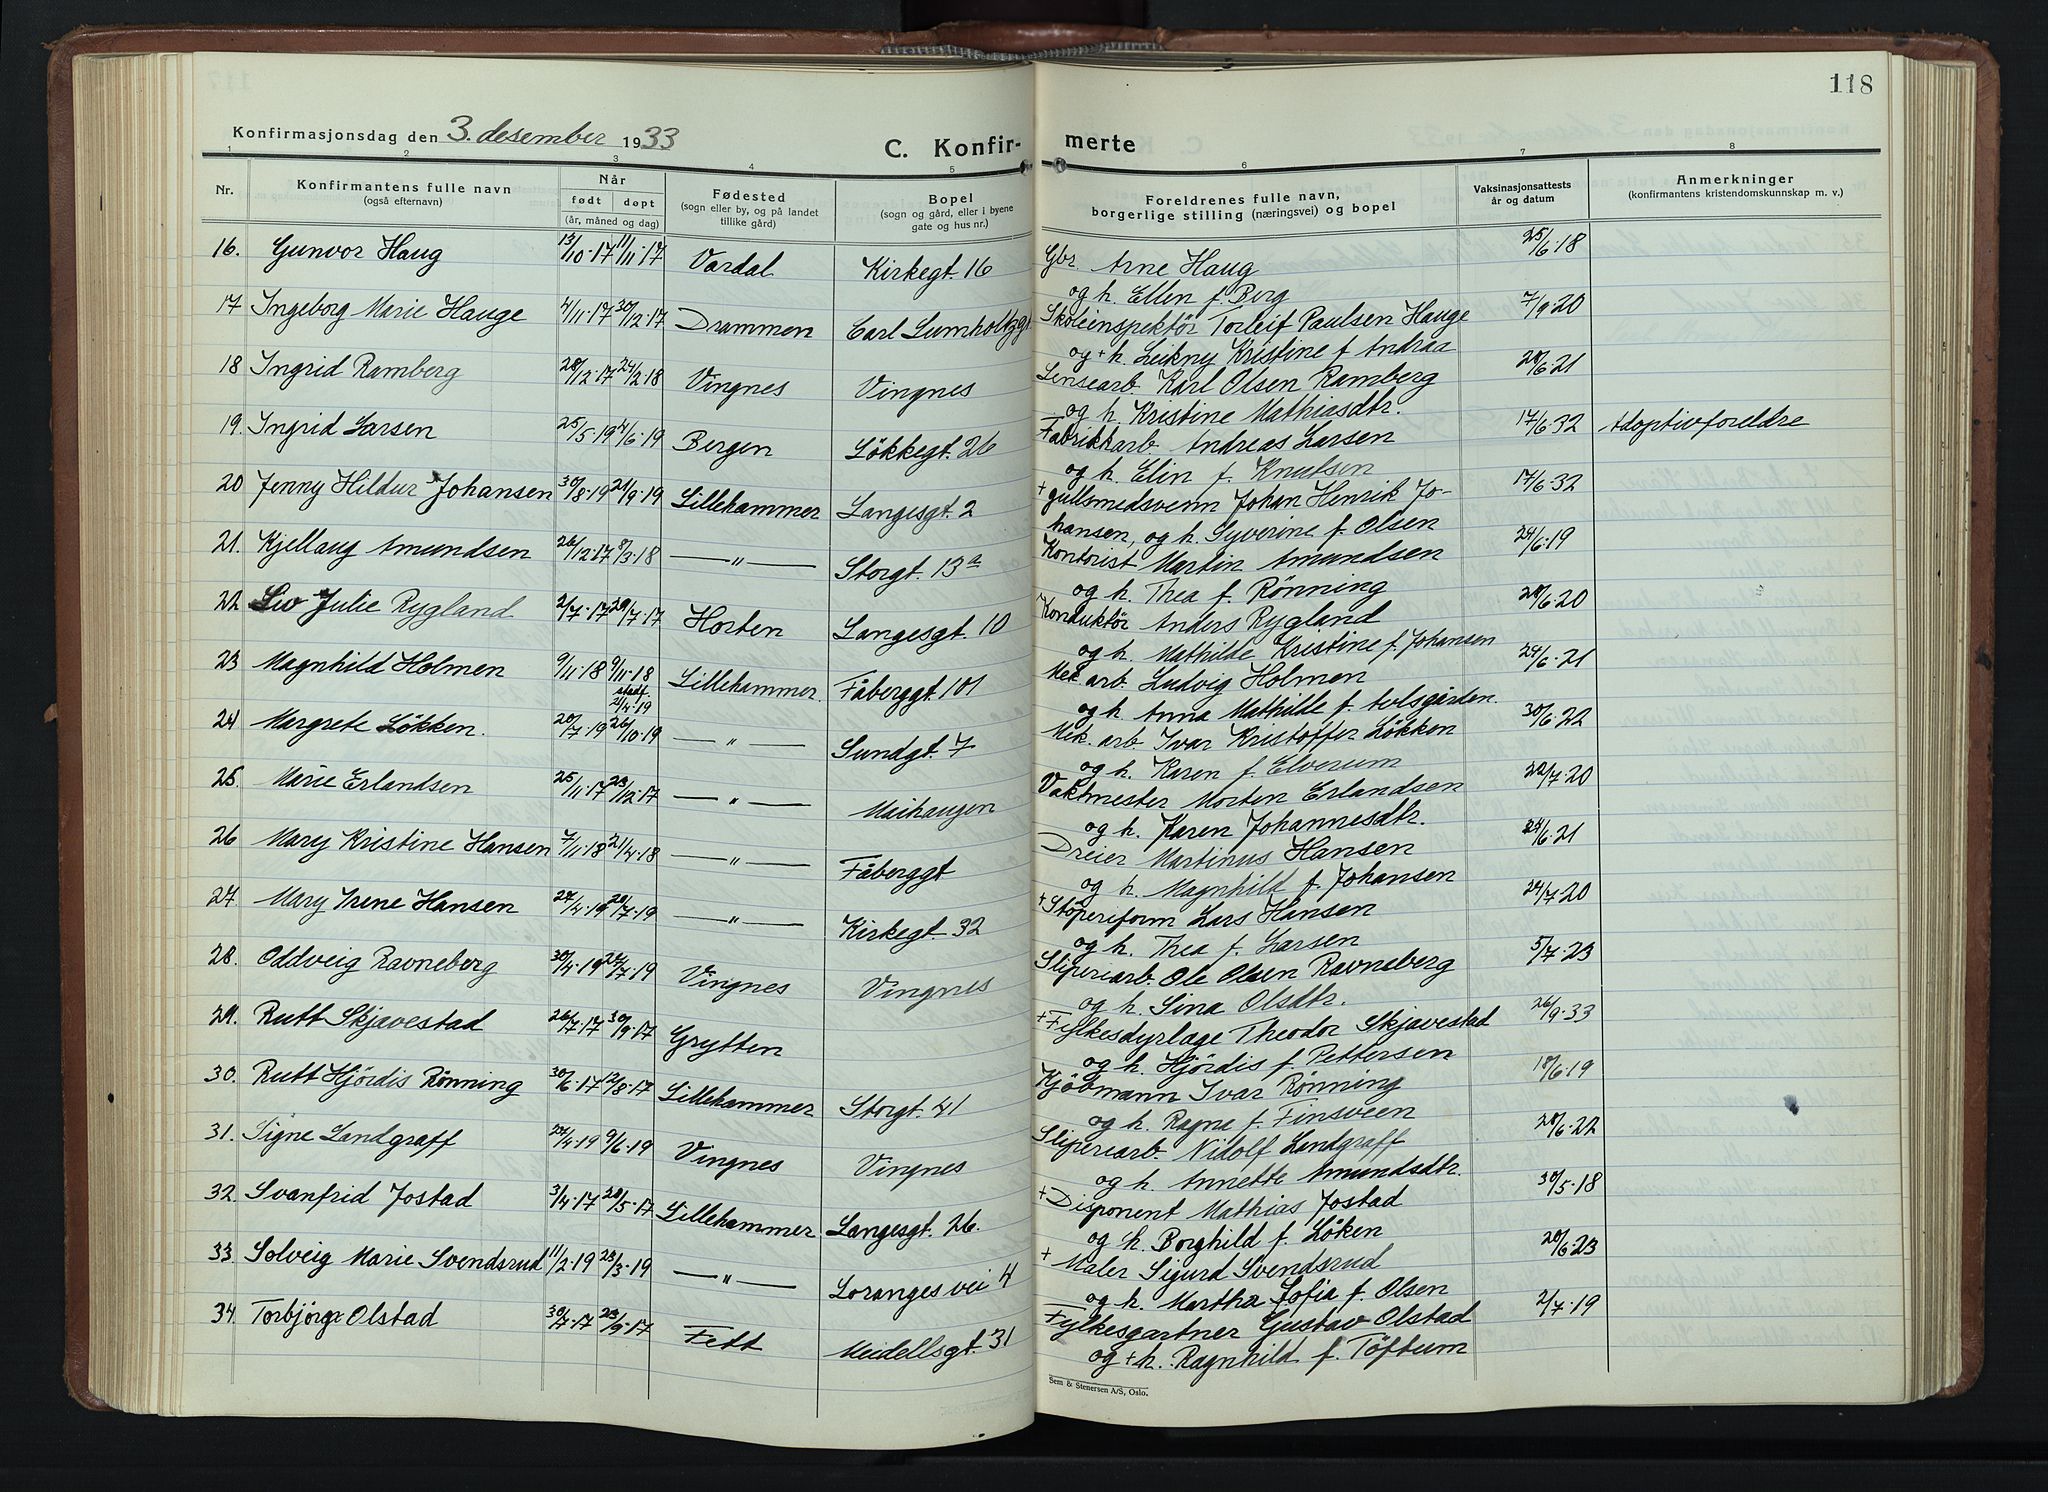 118
Konfirmasjonsdag den 3. desember 1933
C. Konfir- merte
1 2 3 4 5 6 7 8
Nr. Konfirmantens fulle navn (også efternavn) Når født døpt (år, måned og dag) Fødested (sogn eller by, og på landet tillike gård) Bopel (sogn og gård, eller i byene gate og hus nr.) Foreldrenes fulle navn, borgerlige stilling (næringsvei) og bopel Vaksinasjonsattests år og datum Anmerkninger (konfirmantens kristendomskunnskap m. v.)
16. Gunvor Haug 13/10-17 11/11-17 Vardal Kirkegt. 16 Gbr. Arne Haug 25/6-18
og h. Ellen f. Berg
17 Ingeborg Marie Hauge 4/11-17 30/12-17 Drammen Carl Lumholtzgt. Skoleinspektör Torleif Paulsen Hauge 7/9-20
og + h. Leikny Kristine f. Andraa
18 Ingrid Ramberg 28/12-17 24/2-18 Vingnes Vingnes Lensearb. Karl Olsen Ramberg 28/6-21
og h. Kristine Mathiasdtr.
19. Ingrid Larsen 25/5-19 4/6-19 Bergen Lökkegt. 26 Fabrikkarb. Andreas Larsen 17/6-32 Adoptivforeldre
og h. Elin f. Knutsen
20 Jenny Hildur Johansen 30/8-19 21/9-19 Lillehammer Langesgt. 2 + gullsmedsvenn Johan Henrik Jo- 17/6-32
hansen, og h. Gyverine f. Olsen
21. Kjellaug Amundsen 26/12-17 8/3-18 —"— Storgt. 13a Kontorist Martin Amundsen 24/6-19
og h. Thea f. Rønning
22 Liv Julie Rygland 2/7-17 29/7-17 Horten Langesgt. 10 Konduktör Anders Rygland 28/6-20
og h. Mathilde Kristine f. Johansen
23 Magnhild Holmen 9/11-18 9/11-18 Lillehammer Fåberggt. 101 Mek. arb. Ludvig Holmen 24/6-21
stadf. 21/4-19 og h. Anna Mathilde f. Avlsgården
24 Margrete Lökken. 20/7-19 26/10-19 —"— Sundgt. 7 Mek. arb Ivar Kristoffer Lökken 30/6-22
og h. Karen f. Elverum
25. Marie Erlandsen 25/11-17 23/12-17 —"— Maihaugen Vaktmester Morten Erlandsen 22/7-20
og h. Karen Johannesdtr.
26 Mary Kristine Hansen 7/11-18 21/4-18 —"— Fåberggt Dreier Martinus Hansen 24/6-21
og h. Magnhild f. Johansen
27. Mary Irene Hansen 27/4-19 20/7-19 —"— Kirkegt. 32 + Stöperiform Lars Hansen 24/7-20
og h. Thea f. Larsen
28. Oddveig Ravneberg 30/4-19 27/7-19 Vingnes Vingnes Sliperiarb. Ole Olsen Ravneberg 5/7-23
og h. Sina Olsdtr.
29. Rutt Skjavestad 26/7-17 30/9-17 Grytten + Fylkesdyrlæge Theodor Skjavestad 26/9-33
og h. Hjördis f. Pettersen
30. Rutt Hjördis Rønning 30/6-17 12/8-17 Lillehammer Storgt. 41 Kjöbmann Ivar Rønning 18/6-19
og h. Ragna f. Finsveen
31. Signe Landgraff 24/4-19 9/6-19 Vingnes Vingnes Sliperiarb. Nidolf Landgraff 28/6-22
og h. Annette Amundsdtr.
32. Svanfrid Jostad 3/4-17 28/5-17 Lillehammer Langesgt. 26. + Disponent Mathias Jostad 30/5-18
og h. Borghild f. Löken
33. Solveig Marie Svendsrud 11/2-19 23/3-19 —"— Loranges vei 4 + Maler Sigurd Svendsrud 28/6-23
og h. Martha Sofia f. Olsen
34. Torbjörg Olstad 30/7-17 23/9-17 Fett Meidellsgt. 31 Fylkesgartner Gustav Olstad 2/7-19
og + h. Ragnhild f. Töftum
Sem & Stenersen A/S, Oslo.